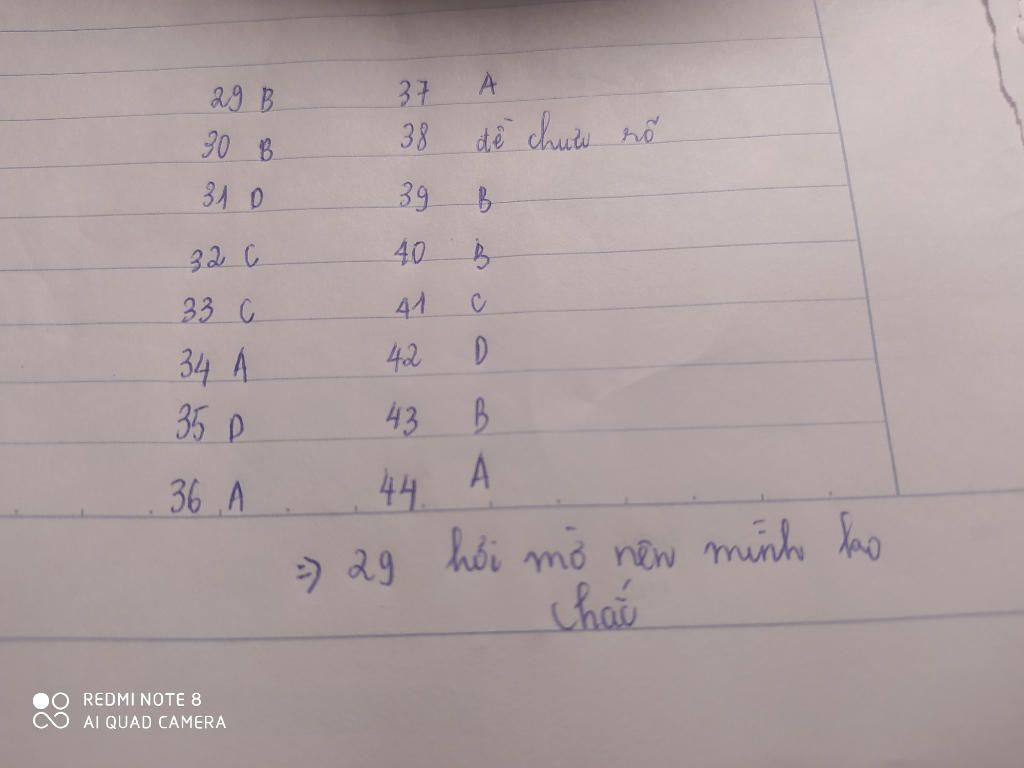 29 B 37 A
30 B 38 đề chưa rõ
31 D 39 B
32 C 40 B
33 C 41 C
34 A 42 D
35 D 43 B
36 A 44 A
=> 29 hơi mờ nên mình
chắc
REDMI NOTE 8
AI QUAD CAMERA